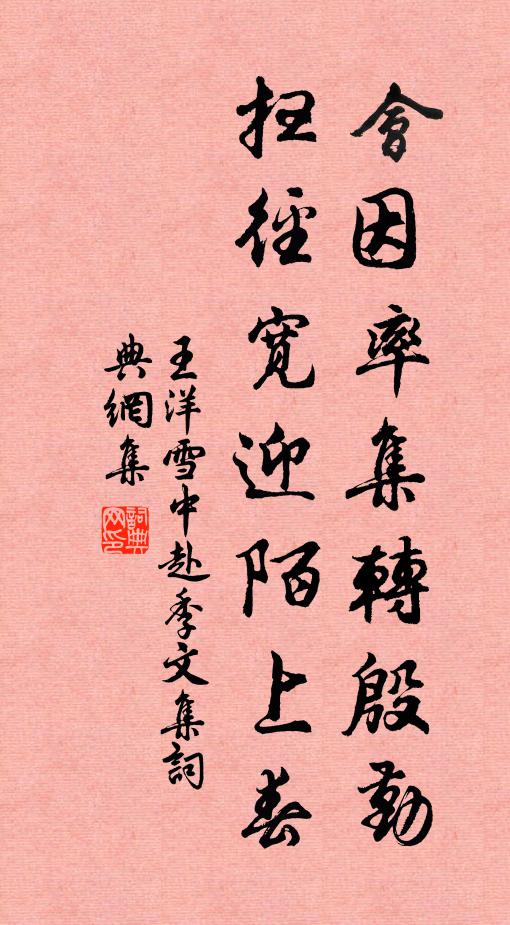 會因率集轉殷勤
拄徑寬迎陌上春
王洋雪中赴季文集詞
典網集
詞典網印